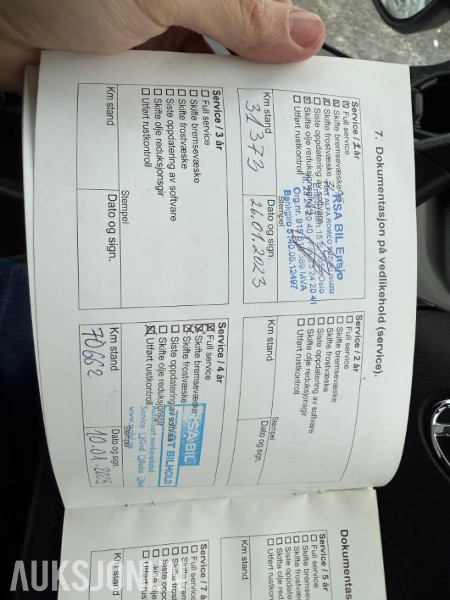 7. Dokumentasjon på vedlikehold (service).
Service / 1 år
Full service
Skifte bremsevæske
Skifte frostvæske
Siste oppdatering av software
Skifte olje reduksjonsgir
Utført rustkontroll
RSA BIL Ensjø
Bankgiro 5140.06.12497
Stempel
Km stand
Dato og sign.
31373
26.01.2023
Service / 2 år
Full service
Skifte bremsevæske
Skifte frostvæske
Siste oppdatering av software
Skifte olje reduksjonsgir
Utført rustkontroll
Stempel
Km stand
Dato og sign.
Service / 3 år
Full service
Skifte bremsevæske
Skifte frostvæske
Siste oppdatering av software
Skifte olje reduksjonsgir
Utført rustkontroll
Stempel
Km stand
Dato og sign.
Service / 4 år
Full service
Skifte bremsevæske
Skifte frostvæske
Siste oppdatering av
Skifte olje reduksjonsgir
Utført rustkontroll
RSA BIL
BILHOLD
Km stand
Dato og sign.
70662
10.01.2025
Service / 5 år
Full service
Skifte
Skifte
Siste oppdater
Skifte olje
Utført rust
Km stand
Service / 7 år
Full service
Skifte
Skifte
Siste
Skifte olje
Utført
Km stand
AUKSJON